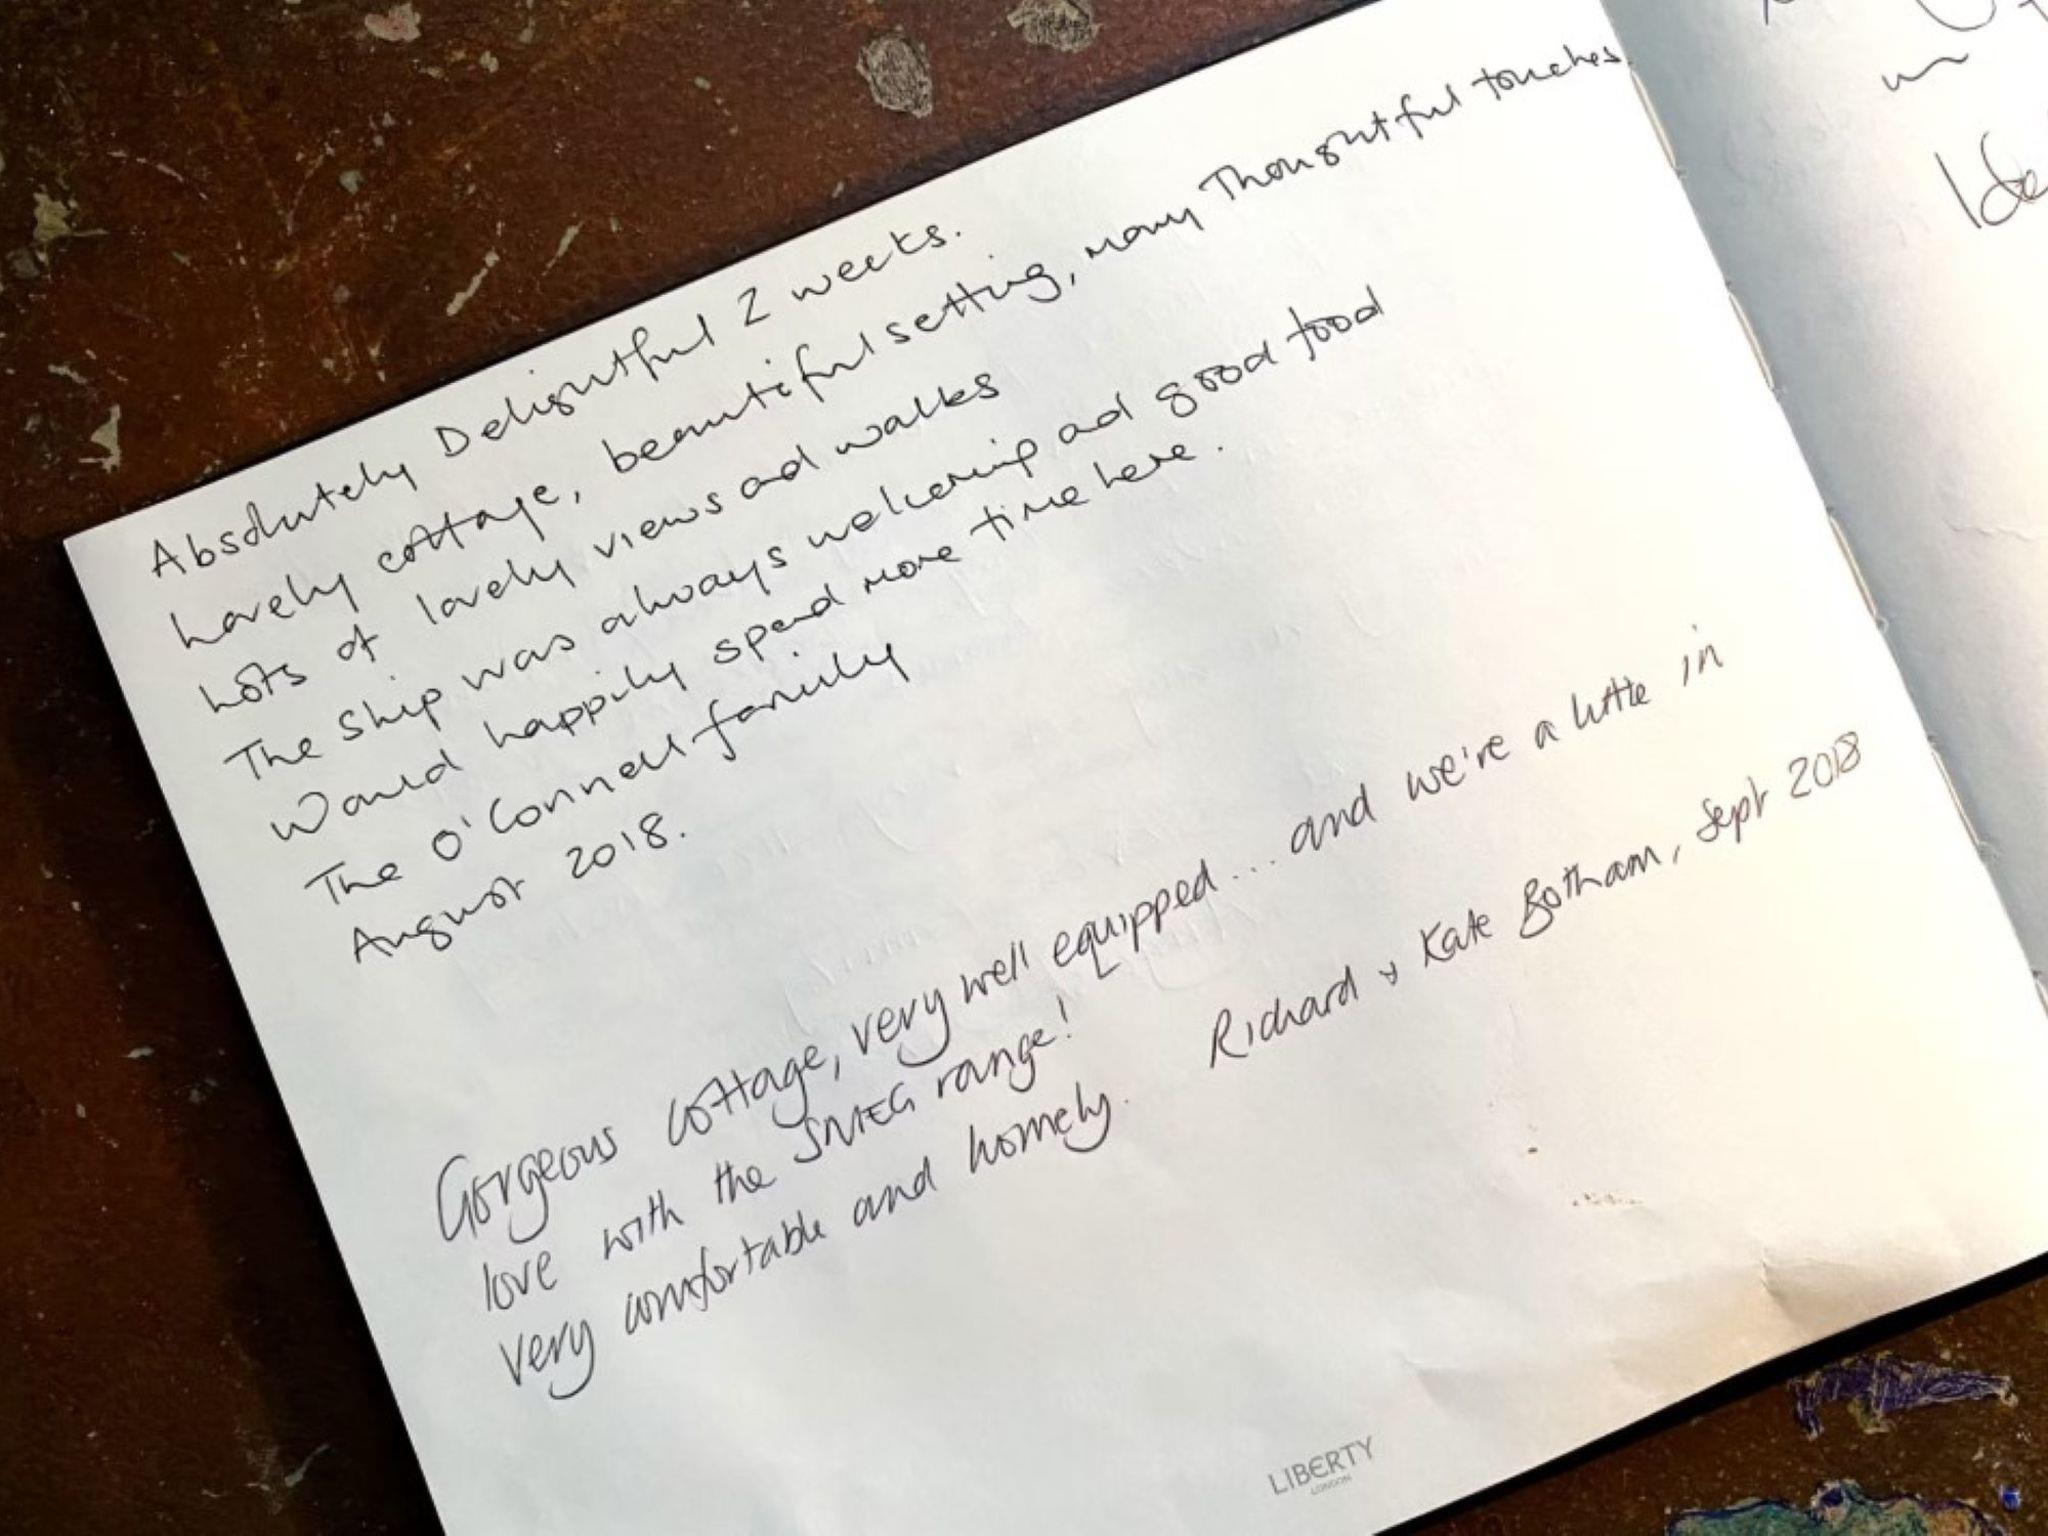 Absolutely Delightful 2 weeks.
Lovely cottage, beautiful setting, many Thoughtful touches.
Lots of lovely views and walks
The Ship was always welcoming and good food
Would happily spend more time here.
The O'Connell family
August 2018.
Gorgeous cottage, very well equipped... and we're a little in
love with the SMEG range!
Very comfortable and homely. Richard & Kate Botham, Sept 2018
LIBERTY
LONDON